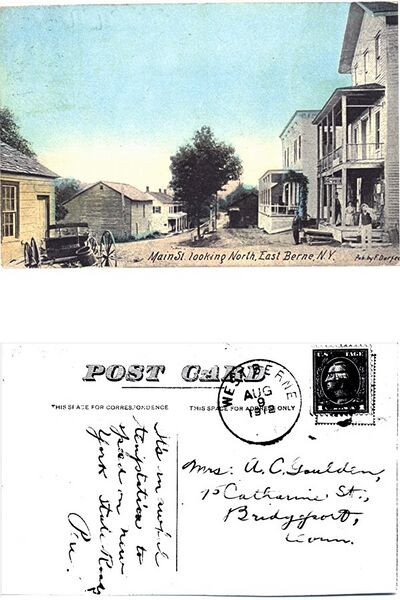 Main St. looking North, East Berne, N.Y.
Pub. by F.
POST CARD
THIS SPACE FOR CORRESPONDENCE
THIS SPACE FOR ADDRESS ONLY
WEST BERNE
AUG
9
1912
temptation to
speed on New
York State Roads
Mrs. A. C. Goulden,
15 Catharine St.,
Bridgeport,
Conn.